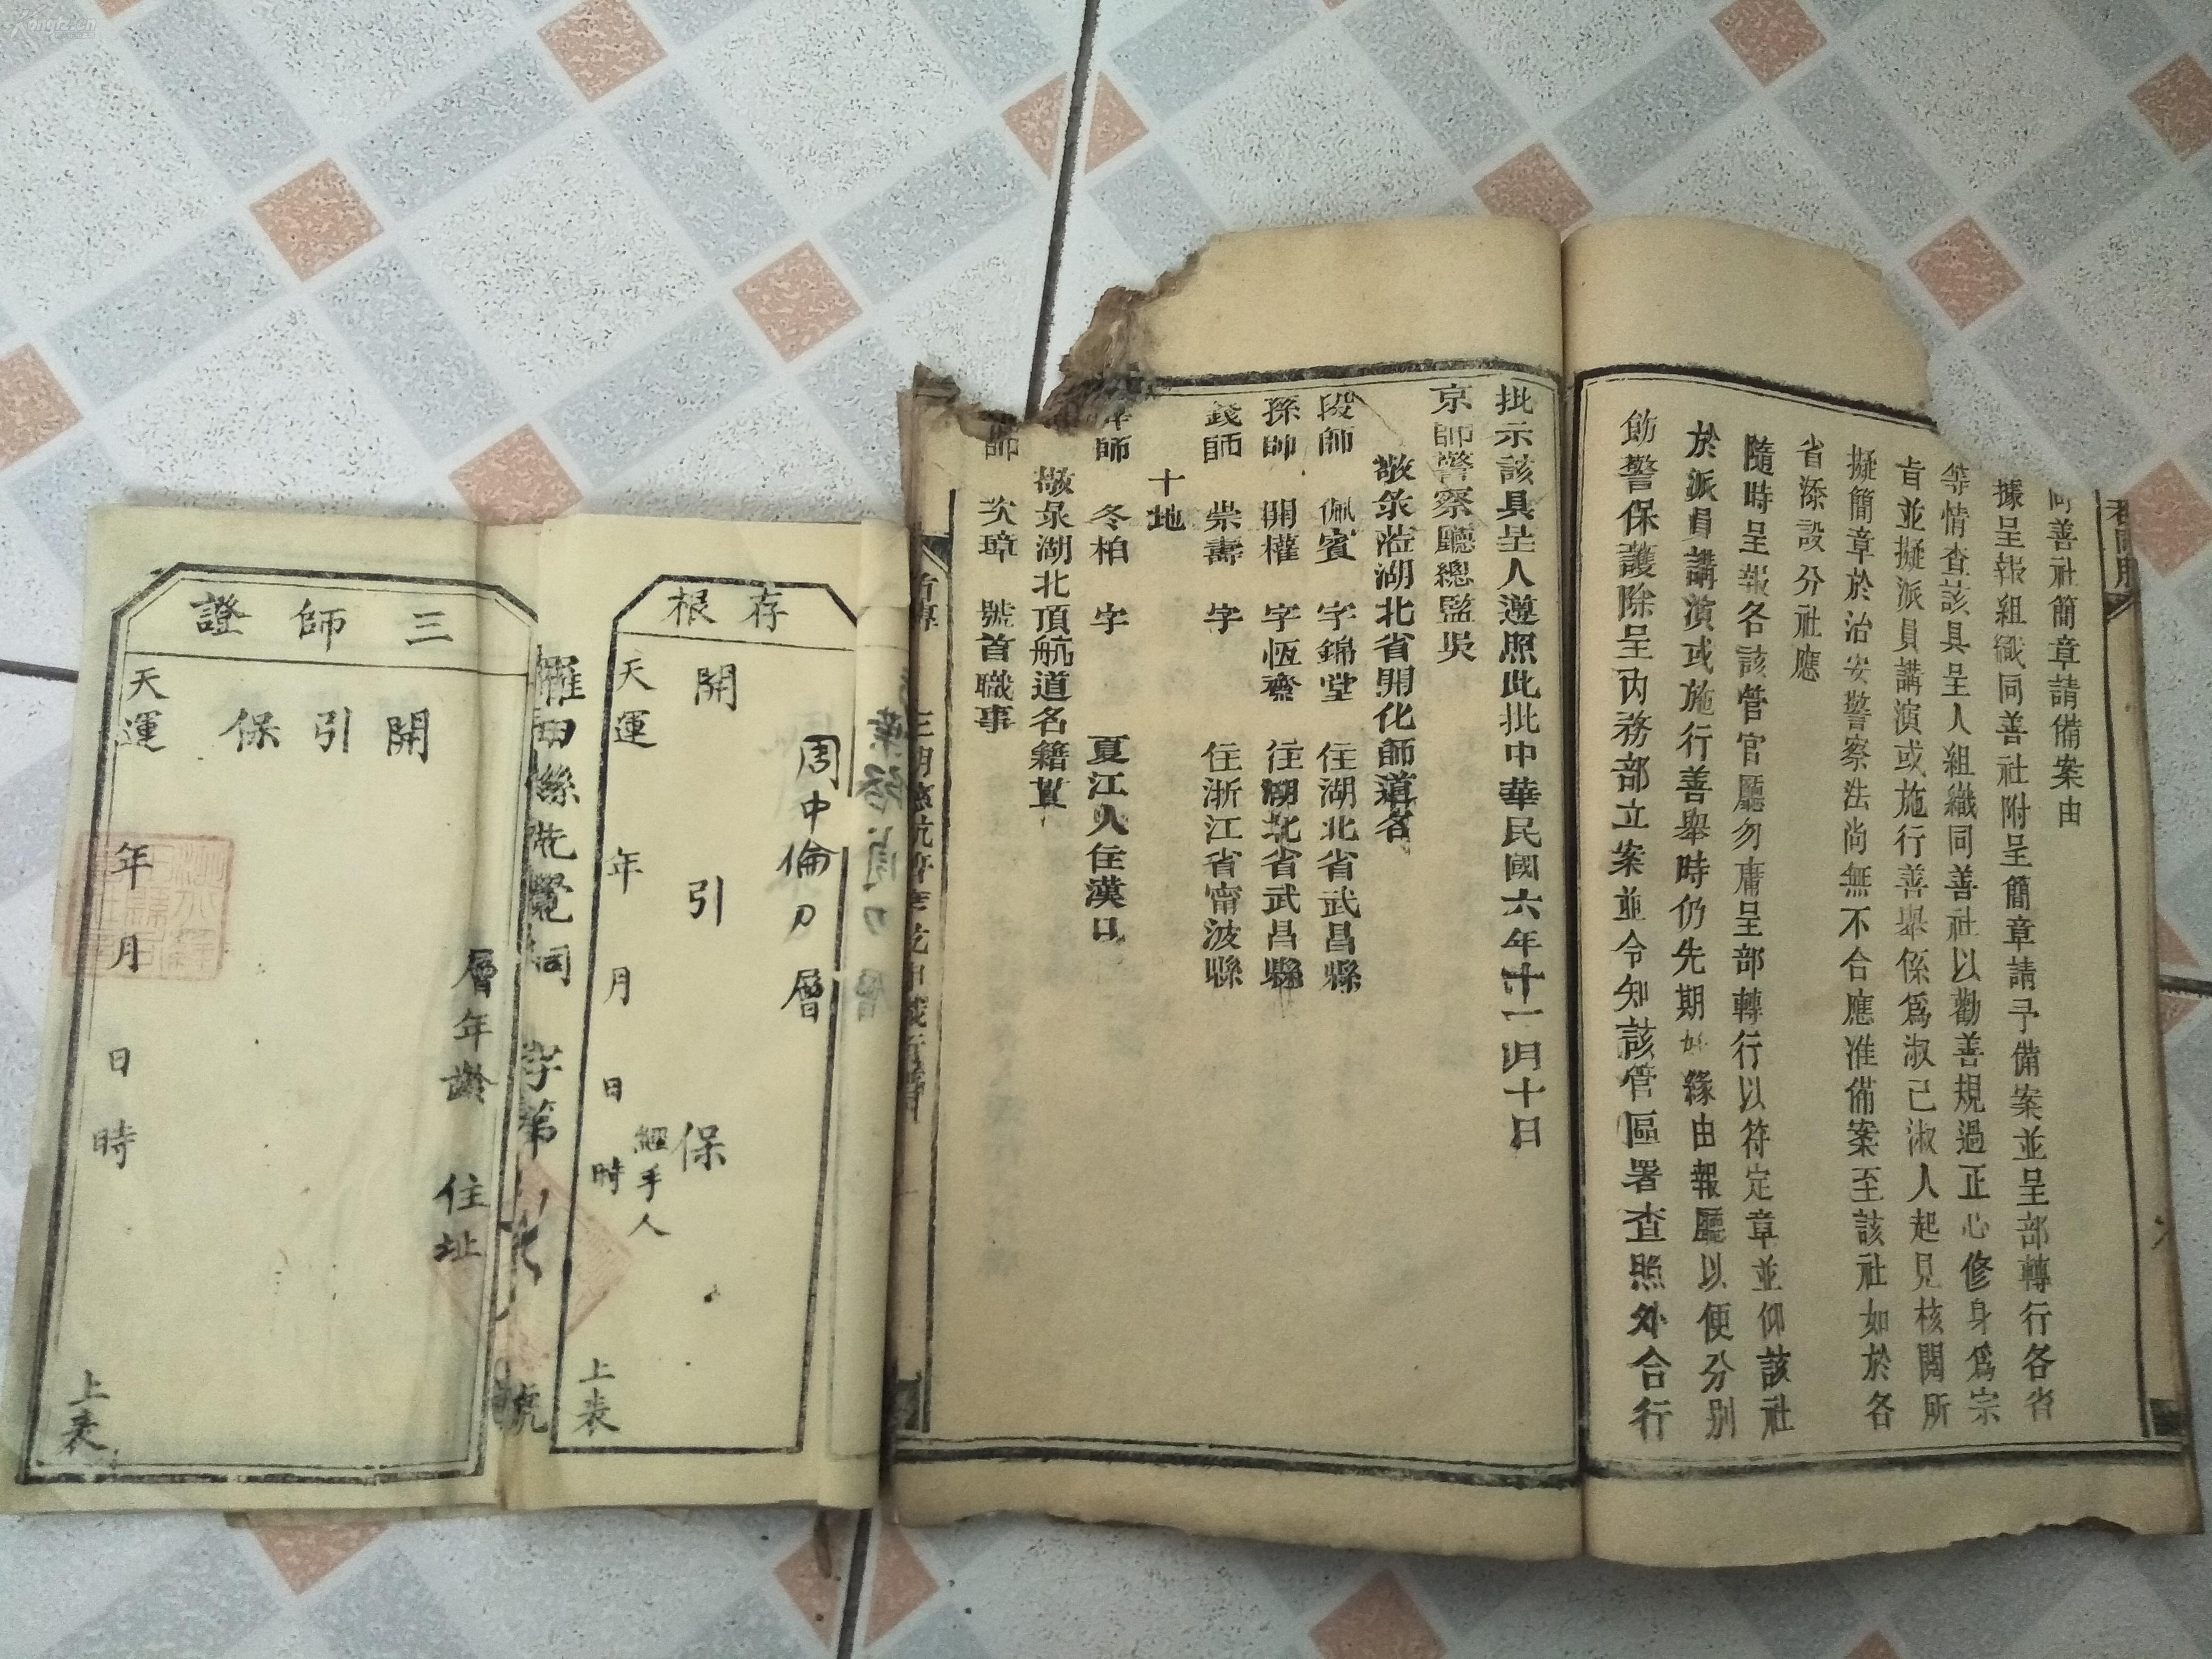 同善社簡章請備案由
據呈報組織同善社附呈簡章請予備案並呈部轉行各省
等情查該具呈人組織同善社以勸善規過正心修身爲宗
旨並擬派員講演或施行善舉係爲淑己淑人起見核閱所
擬簡章於治安警察法尚無不合應准備案至該社如於各
省添設分社應
隨時呈報各該管官廳勿庸呈部轉行以符定章並仰該社
於派員講演或施行善舉時仍先期 緣由報廳以便分別
飭警保護除呈內務部立案並令知該管區署查照外合行
批示該具呈人遵照此批中華民國六年十一月十日
京師警察廳總監吳
敬錄蒞湖北省開化師道名
段師 佩賓 字錦堂 住湖北省武昌縣
孫師 開權 字恆齋 住湖北省武昌縣
錢師 崇壽 字 住浙江省甯波縣
十地
師 冬柏 字 夏江人住漢口
敬錄湖北頂航道名籍貫
師 次璋 號首職事
存根
周中倫 層
開 引 保
經手人
天運 年 月 日 時 上表
字第 號
三師證
層年齡 住址
開 引 保
天運 年 月 日 時 上表